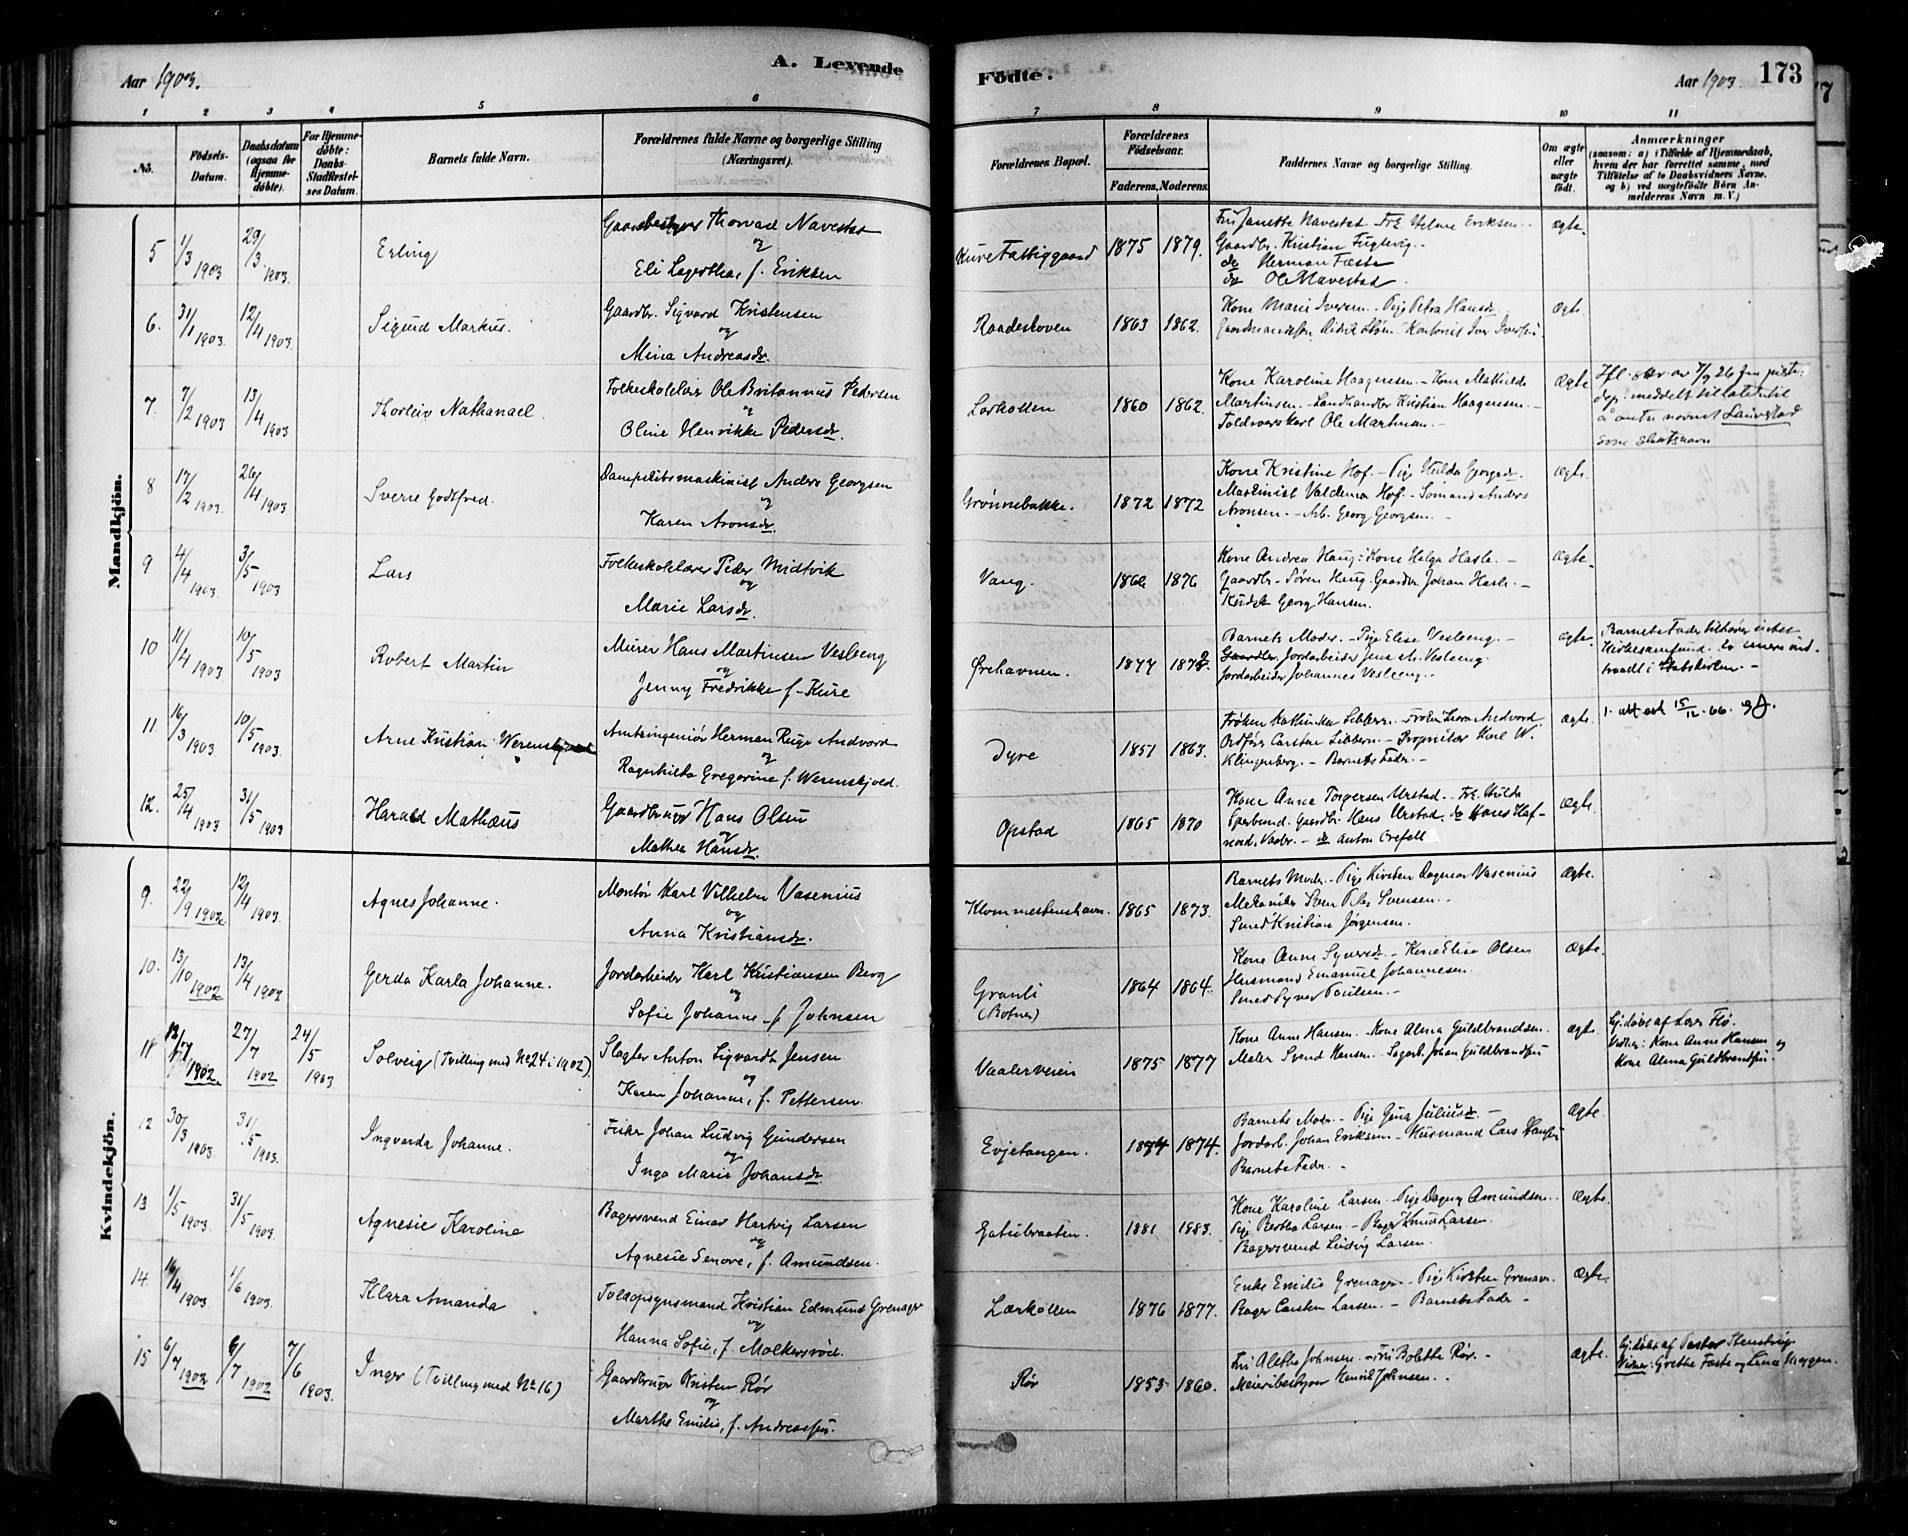 Aar 1903.
A. Levende
Födte.
Aar 1903.
173
1 2 3 4 5 6 7 8 9 10 11
No.
Födsels-Datum.
Daabsdatum (ogsaa for Hjemmedöbte).
For Hjemmedöbte: Daabs-Stadfæstelses Datum.
Barnets fulde Navn.
Forældrenes fulde Navne og borgerlige Stilling (Næringsvei).
Forældrenes Bopæl.
Forældrenes Födselsaar.
Faderens. Moderens.
Faddernes Navne og borgerlige Stilling.
Om ægte eller uægte födt.
Anmærkninger
(saasom: a) i Tilfælde af Hjemmedaab, hvem der har forrettet samme, med Tilföielse af to Daabsvidners Navne, og b) ved uægtefödte Börn Anmelderens Navn m. V.)
Mandkjön.
5 1/3 1903 29/3 1903. Erling
Gaardbestyrer Thorvad Navestad
og
Eli Lagertha, f. Eriksen
Kure Fattiggaard 1875 1879.
Fru Janette Navestad - Frk Helene Eriksen -
Gaardbr. Kristian Fuglevig.
do Herman Fæste
do Ole Navestad
ægte.
6. 31/1 1903. 12/4 1903. Sigurd Markus.
Gaardbr. Sigvard Kristensen
og
Mina Andreasdr.
1863 1862.
Kone Marie Iversen - Pige Petra Hansdr
Iver Iversen
Ægte.
7. 7/2 1903 13/4 1903. Thorleiv Nathanael.
Folkeskolelærer Ole Britannus Pedersen
og
Oline Henrikke Pedersdr.
Larkollen 1860 1862.
Kone Karoline Haagensen - Kone Mathilde
Martinsen - Landhandler Kristian Haagensen -
Ole Martinsen. -
Ægte
Ifl. skr av 7/9 26 fra justis
dep. meddelt tillatelse til
å anta navnet Lauvstad
som slektsnavn
8 17/2 1903. 26/4 1903 Sverre Godtfred.
Anders Georgsen
og
Karen Aronsdr.
Grønnebakke. 1872 1872
Kone Kristine Hof. - Pige Hulda Georgsdr.
Maskinist Valdemar Hof. - Sømand Anders
Aronsen. - Arb. Georg Georgsen. -
Ægte.
9 4/4 1903 3/5 1903 Lars
Folkeskolelærer Peder Midtvik
og
Marie Larsdr.
Vang. 1876
Kone Andrea Haug: Kone Helga Hasle. -
Gaardbr. Søren Haug. Gaardbr Johan Hasle. -
Kudsk Georg Hansen.
Ægte.
10 11/4 1903 10/5 1903 Robert Martin
Murer Hans Martinsen Vesleeng
og
Jenny Fredrikke f. Kure
Ørehavnen. 1877
Barnets Moder. - Pige Elise Vesleeng. -
Gaardbr. Jordarbeider Jens M. Vesleeng.
Jordarbeider Johannes Vesleeng. -
ægte.
Barnets Fader tilhører intet
Kirkesamfund.
traadt i Statskirken. -
11 16/3 1903 10/5 1903 Arne Kristian Werenskjold
Amtsingeniør Herman Ruge Andvord
og
Ragnhilda Gregorine f. Werenskjold.
Dyre 1851 1863.
Frøken Kathinka Sibbern. - Frøken Andvord
Ordfører Carsten Sibbern. - Proprietær Karl W.
Klingenberg. - Barnets Fader. -
ægte.
1. att est 15/12. 66.
12. 25/4 1903 31/5 1903 Harald Mathæus
Gaardbruger Hans Olsen
og
Mathea Hansdr.
Opstad 1865 1870
Kone Anna Torgersen Urstad. - Frk Hulda
Gaardbr. Hans Urstad, do Hans Haf-
do Anton Orefell
Ægte.
Kvindekjön.
9. 22/9 1902 12/4 1903. Agnes Johanne.
Montør Karl Vilhelm Vasenius
og
Anna Kristiansdr.
Klommestenshavn. 1865 1873.
Barnets Moder. - Pige Kirsten Dagmar Vasenius
Mekaniker Sven Olaf Svensen. -
Smed Kristian Jørgensen.
Ægte.
10. 13/10 1902 13/4 1902 Gerda Karla Johanne.
Jordarbeider Karl Kristiansen Berg
og
Sofie Johanne f Johnsen
Granli
(Botner) 1864 1864.
Kone Anne Syversdr. - Kone Elise Olsen
Husmand Emanuel Johannesen.
Smed Syver Paulsen. -
Ægte.
11 12/7 1902. 27/7 1902 24/5 1903 Solveig (Tvilling med No 24 i 1902)
Slagter Anton Sigvardt Jensen
og
Karen Johanne, f. Pettersen.
Vaalerveien 1875 1877
Kone Anne Hansen - Kone Alma Guldbrandsen
Maler Svend Hansen. - Sagarb. Johan Guldbrandsen
ægte
Hj.døbt af Lars Flø.
Vidner: Kone Anne Hansen og
Kone Alma Guldbrandsen.
12 30/3 1903 31/5 1903. Ingvarda Johanne.
Fisker Johan Ludvig Gundersen
og
Inga Marie Johansdr
Evjetangen. 1874 1874.
Barnets Moder - Pige Gina Juliusdr. -
Jordarb. Johan Eriksen - Husmand Lars Hansen
Barnets Fader. -
Ægte.
13 1/5 1903. 31/5 1903. Agnesie Karoline
Bagersvend Einar Hartvig Larsen
og
Agnesie Senove, f. Amundsen.
1881 1883.
Kone Karoline Larsen - Pige Dagny Amundsen. -
Pige Bertha Larsen. - Bager Knud Larsen.
Bagersvend Ludvig Larsen.
Ægte.
14 16/4 1903 1/6 1903. Klara Amanda
Toldopsynsmand Kristian Edmund Grenager
og
Hanna Sofie, f. Molkersröd.
Lærkollen 1876 1877.
Enke Emilie Grenager - Pige Kirsten Grenager.
Bager Carsten Larsen. - Barnets Fader -
Ægte.
15 6/7 1902 6/7 1902 7/6 1903. Inger (Tvilling med No 16)
Gaardbruger Kristen Rør
og
Marthe Emilie, f. Andreassen.
Rør 1853 1860.
Fru Alethe Johnsen. - Fru Bolette Rør. -
Meieribestyrer Henrik Johnsen. -
ægte.
Hj.døbt af Pastor Stenstrup
Vidner: Grethe Fæste og Lina